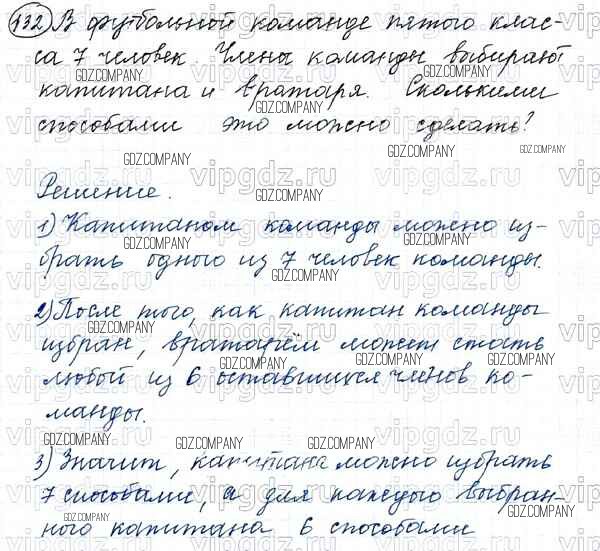 132) В футбольной команде пятого клас-
са 7 человек. Члены команды выбирают
капитана и вратаря. Сколькими
способами это можно сделать?
Решение.
1) Капитаном команды можно из-
брать одного из 7 человек команды.
2) После того, как капитан команды
избран, вратарём может стать
любой из 6 оставшихся членов ко-
манды.
3) Значит, капитана можно избрать
7 способами, а для каждого выбран-
ного капитана 6 способами